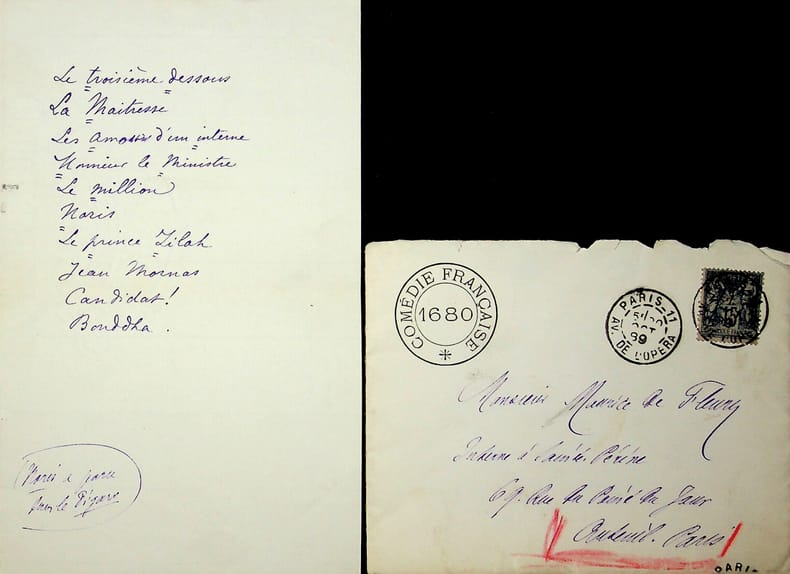 Le troisième dessous
La Maitresse
Les amours d'un interne
Monsieur le Ministre
Le million
Noris
Le prince Zilah
Jean Mornas
Candidat!
Bouddha.
Noris a paru
dans le Figaro
COMÉDIE FRANÇAISE
1680
PARIS-11
OCT
89
AV. DE L'OPERA
Monsieur Maurice de Fleury
Interne à Sainte Périne
69 Rue du Point du Jour
Auteuil. Paris
PARI